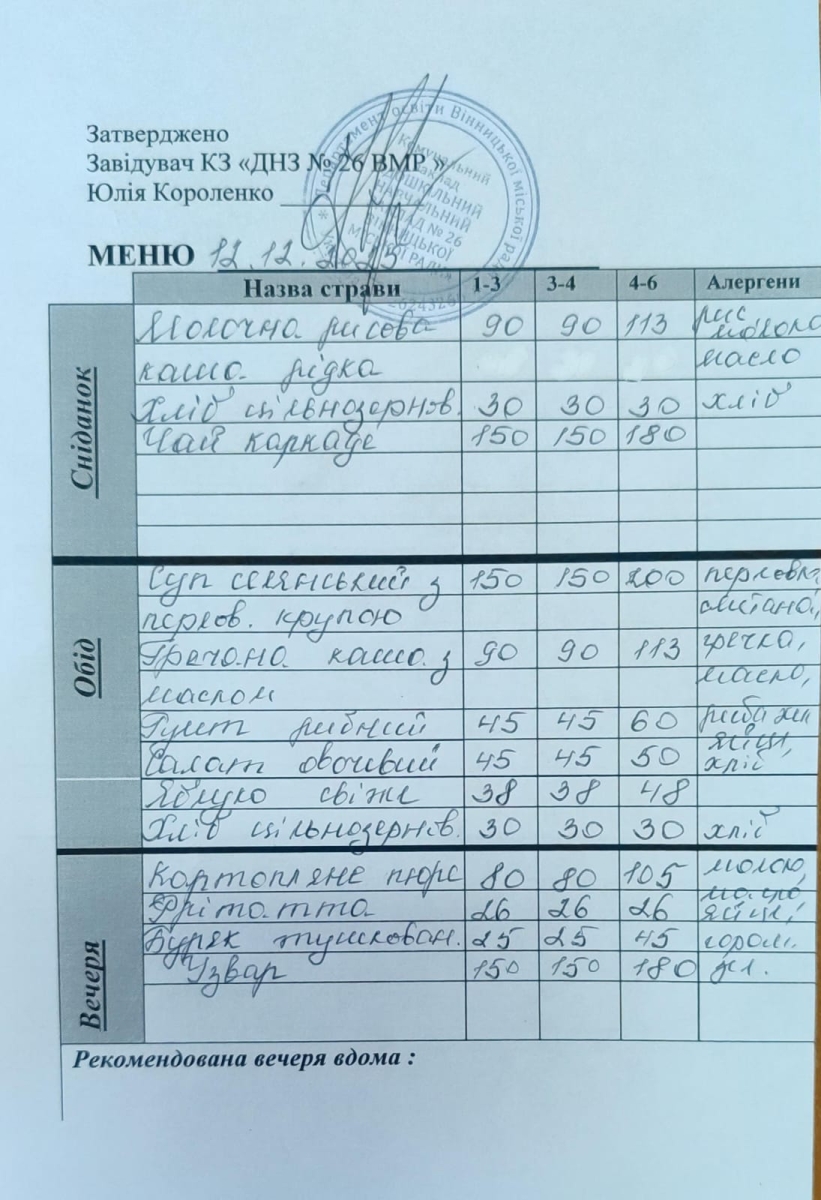 Затверджено
Завідувач КЗ «ДНЗ № 26 ВМР »
Юлія Короленко
Департамент освіти Вінницької міської ради
Комунальний
заклад
ДОШКІЛЬНИЙ
НАВЧАЛЬНИЙ
ЗАКЛАД № 26
ВІННИЦЬКОЇ
МІСЬКОЇ РАДИ
МЕНЮ 12.12.2025
Назва страви 1-3 3-4 4-6 Алергени
Сніданок
Молочна рисова 90 90 113 рис молоко
каша рідка масло
Хліб цільнозернов. 30 30 30 хліб
Чай каркаде 150 150 180
Обід
Суп селянський з 150 150 200 перловка,
перлов. крупою сметана,
Гречана каша з 90 90 113 гречка,
маслом масло,
Гуляш рибний 45 45 60 риба
Салат овочевий 45 45 50 яйця, хліб
Яблуко свіже 38 38 48
Хліб цільнозернов. 30 30 30 хліб
Вечеря
Картопляне пюре 80 80 105 молоко,
Фрітатта 26 26 26 масло яйця,
Буряк тушкован. 25 25 45
Узвар 150 150 180
Рекомендована вечеря вдома :